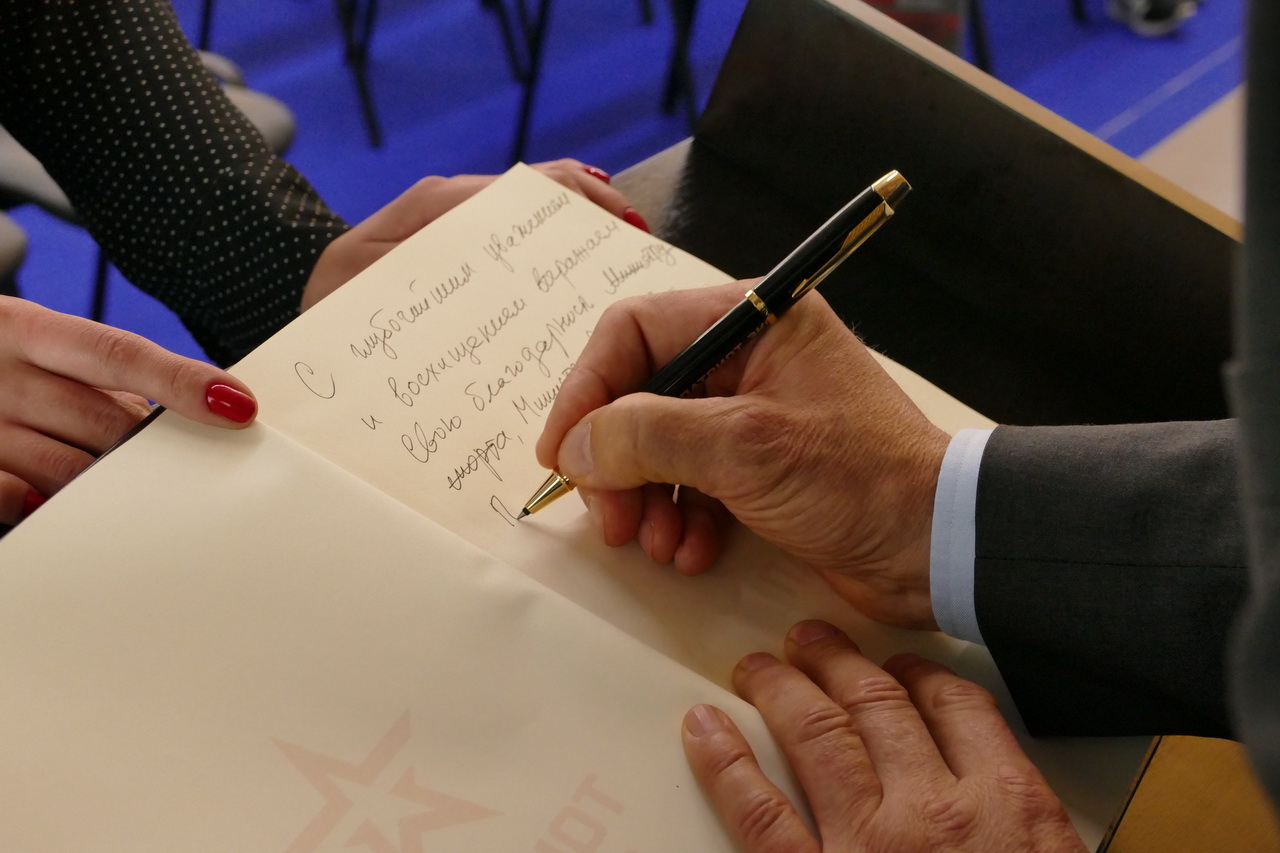 С глубочайшим уважением
и восхищением выражаем
свою благодарность Министру
спорта,
П
ИОТ